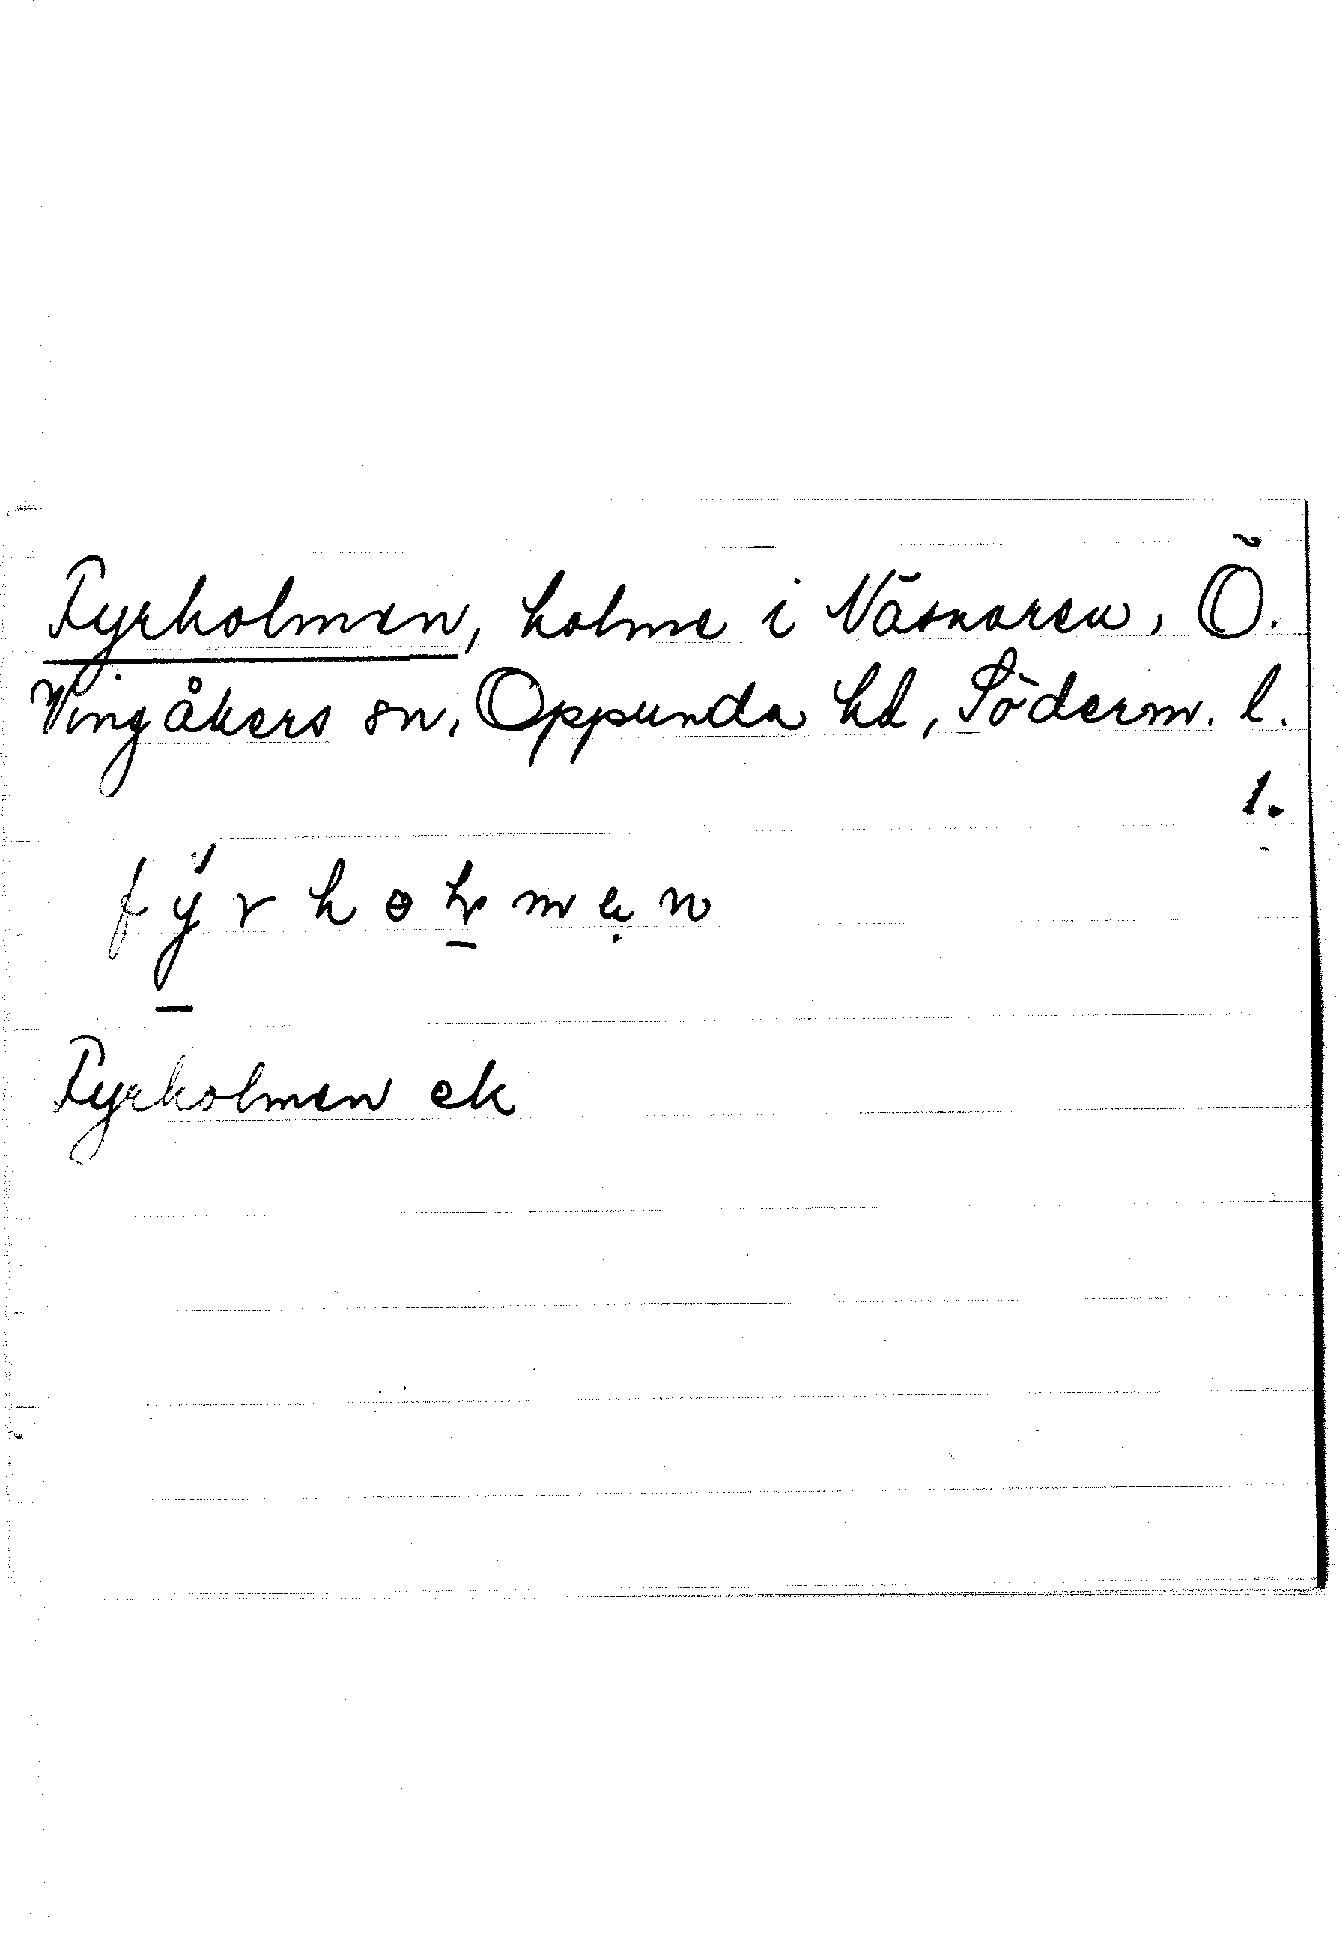 Fyrholmen, holme i Näsnaren, Ö.
Vingåkers sn, Oppunda hd, Söderm. l.
1.
Fyrholmen ek